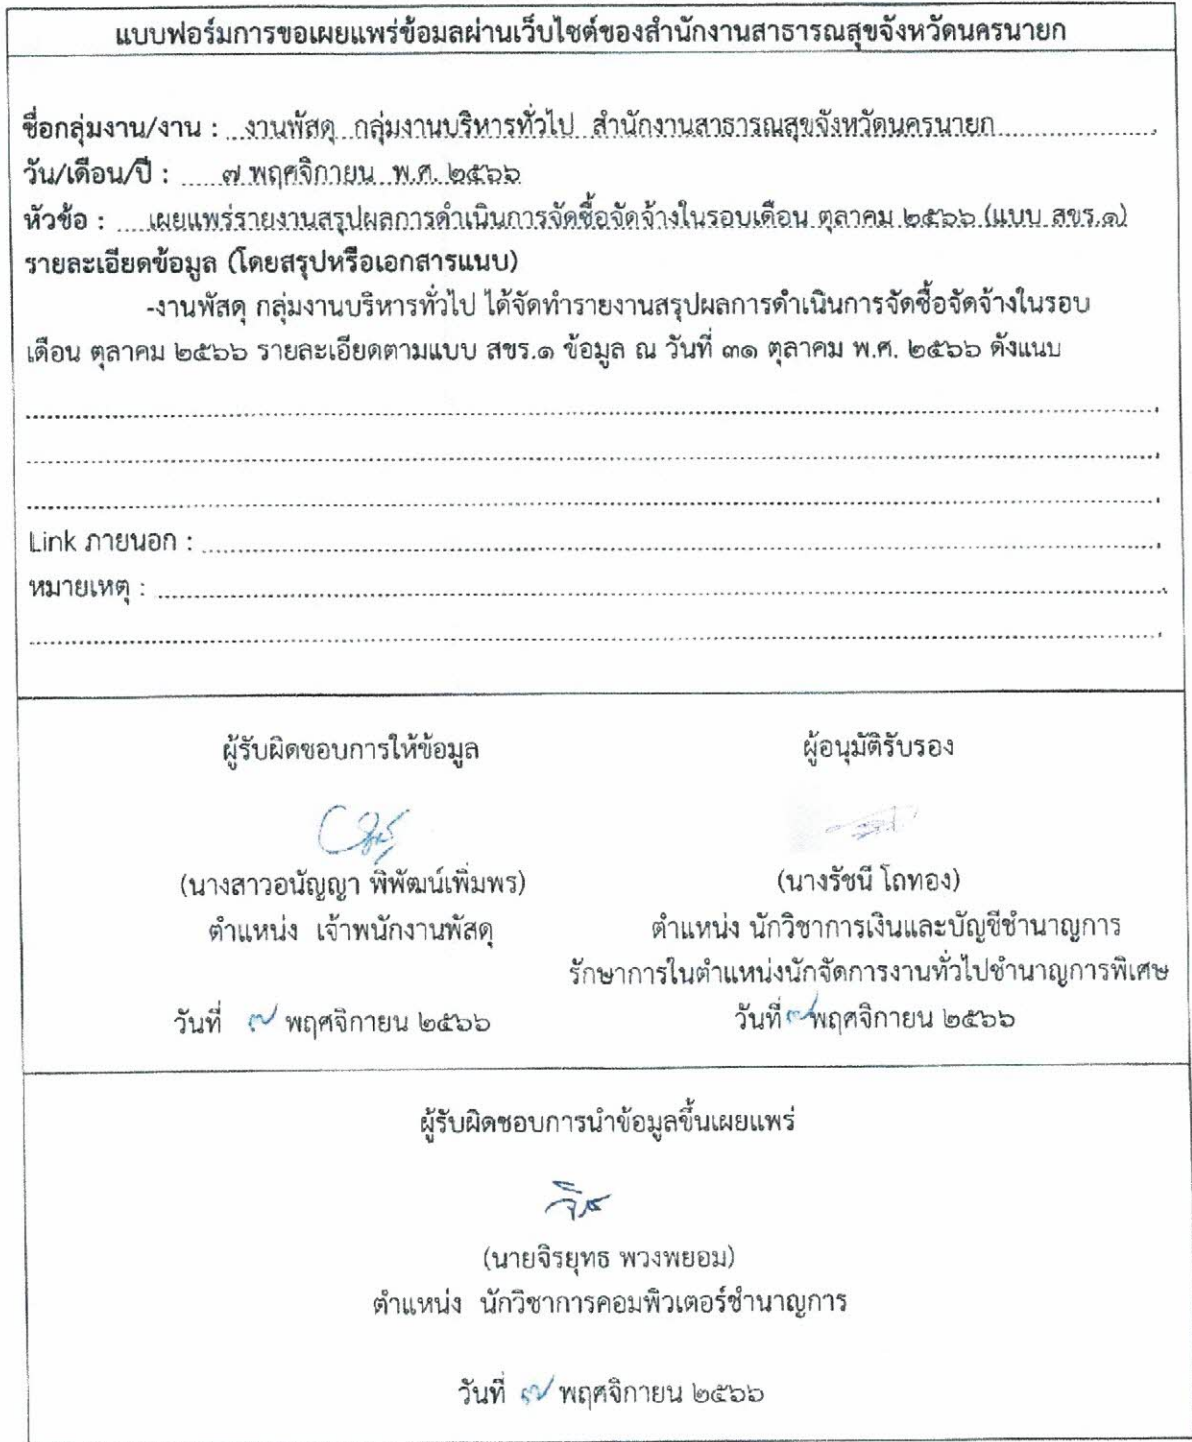 แบบฟอร์มการขอเผยแพร่ข้อมลผ่านเว็บไซต์ของสำนักงานสาธารณสุขจังหวัดนครนายก
ชื่อกลุ่มงาน/งาน : งานพัสดุ กลุ่มงานบริหารทั่วไป สำนักงานสาธารณสุขจังหวัดนครนายก
วัน/เดือน/ปี : ๗ พฤศจิกายน พ.ศ. ๒๕๖๖
หัวข้อ : เผยแพร่รายงานสรุปผลการดำเนินการจัดซื้อจัดจ้างในรอบเดือน ตุลาคม ๒๕๖๖ (แบบ สขร.๑)
รายละเอียดข้อมูล (โดยสรุปหรือเอกสารแนบ)
-งานพัสดุ กลุ่มงานบริหารทั่วไป ได้จัดทำรายงานสรุปผลการดำเนินการจัดซื้อจัดจ้างในรอบ
เดือน ตุลาคม ๒๕๖๖ รายละเอียดตามแบบ สขร.๑ ข้อมูล ณ วันที่ ๓๑ ตุลาคม พ.ศ. ๒๕๖๖ ดังแนบ
Link ภายนอก :
หมายเหตุ :
ผู้รับผิดชอบการให้ข้อมูล
(นางสาวอนัญญา พิพัฒน์เพิ่มพร)
ตำแหน่ง เจ้าพนักงานพัสดุ
วันที่ ๗ พฤศจิกายน ๒๕๖๖
ผู้อนุมัติรับรอง
(นางรัชนี โถทอง)
ตำแหน่ง นักวิชาการเงินและบัญชีชำนาญการ
รักษาการในตำแหน่งนักจัดการงานทั่วไปชำนาญการพิเศษ
วันที่ ๗ พฤศจิกายน ๒๕๖๖
ผู้รับผิดชอบการนำข้อมูลขึ้นเผยแพร่
(นายจิรยุทธ พวงพยอม)
ตำแหน่ง นักวิชาการคอมพิวเตอร์ชำนาญการ
วันที่ ๗ พฤศจิกายน ๒๕๖๖